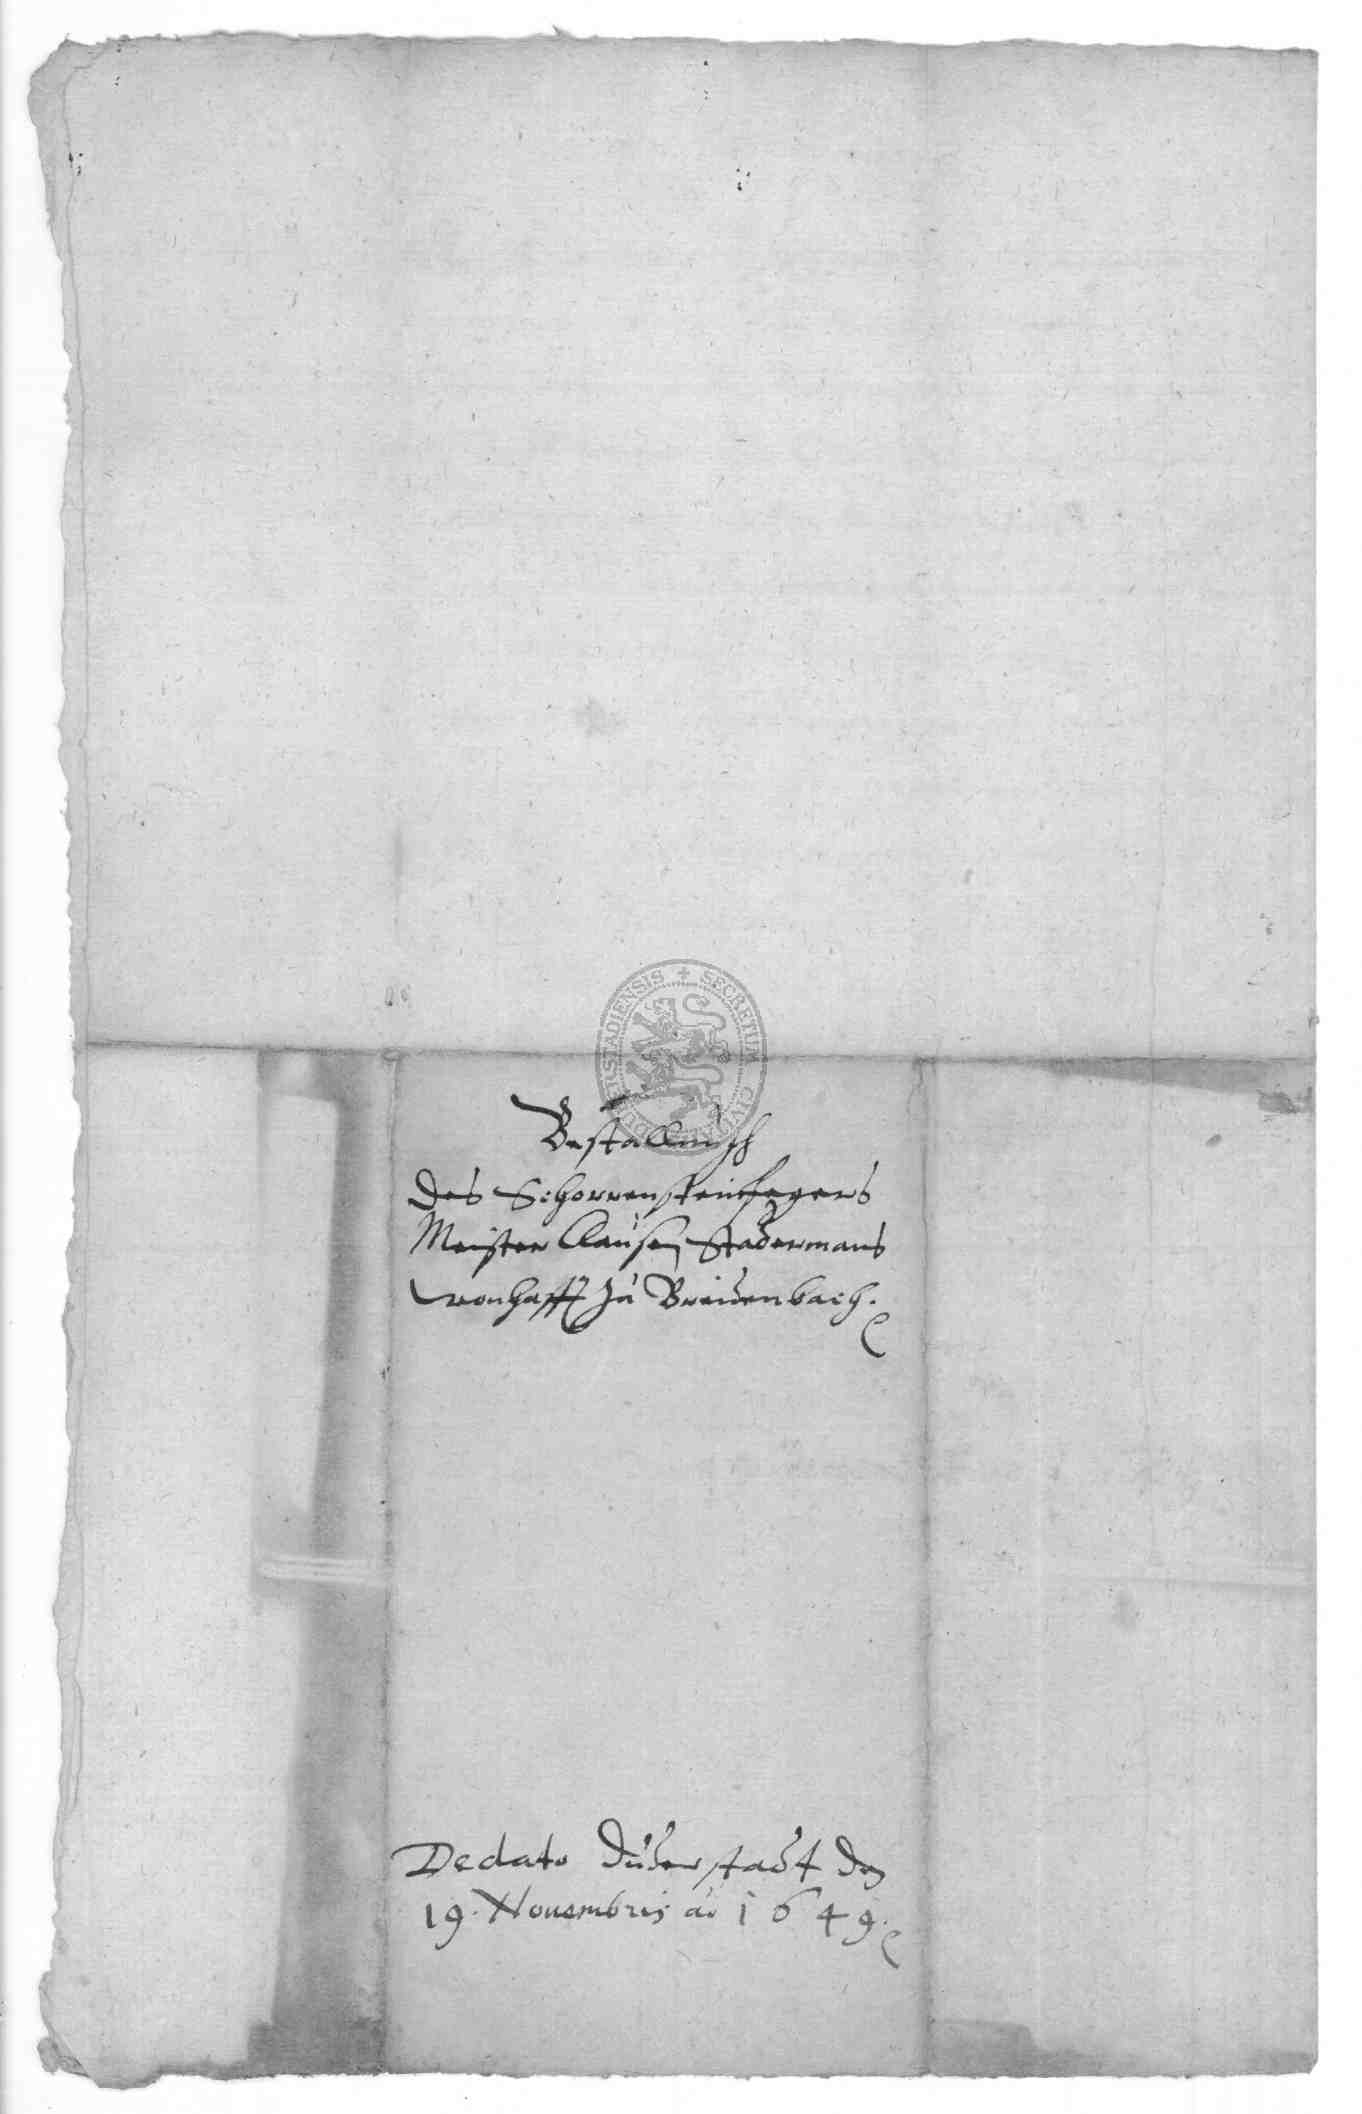 SECRETUM CIVIUM DUDERSTADIENSIS
Bestallungh
des Schorrensteinfegers
Meister Clausen Stadermans
wonhafft zu Breidenbach.
De dato Duderstadt den
19. Novembris ao 1649.